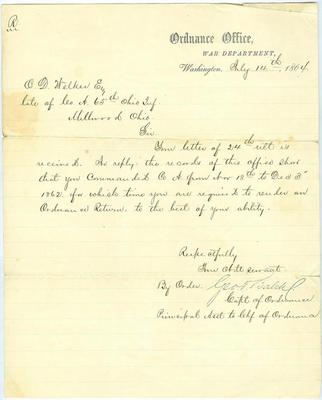 Ordnance Office,
WAR DEPARTMENT,
Washington, July 14th, 1864.
O. D. Welker Esq
late of Co A 65th Ohio Inf
Millwood Ohio
Sir
Your letter of 24th ult is
received. In reply: the records of this office show
that you Commanded Co A from Nov 18th to Decd 3d
1862. for which time you are required to render an
Ordnance Return. to the best of your ability.
Respectfully
Your Obdt servant
By Order.
Capt of Ordnance
Principal Asst to Chf of Ordnance